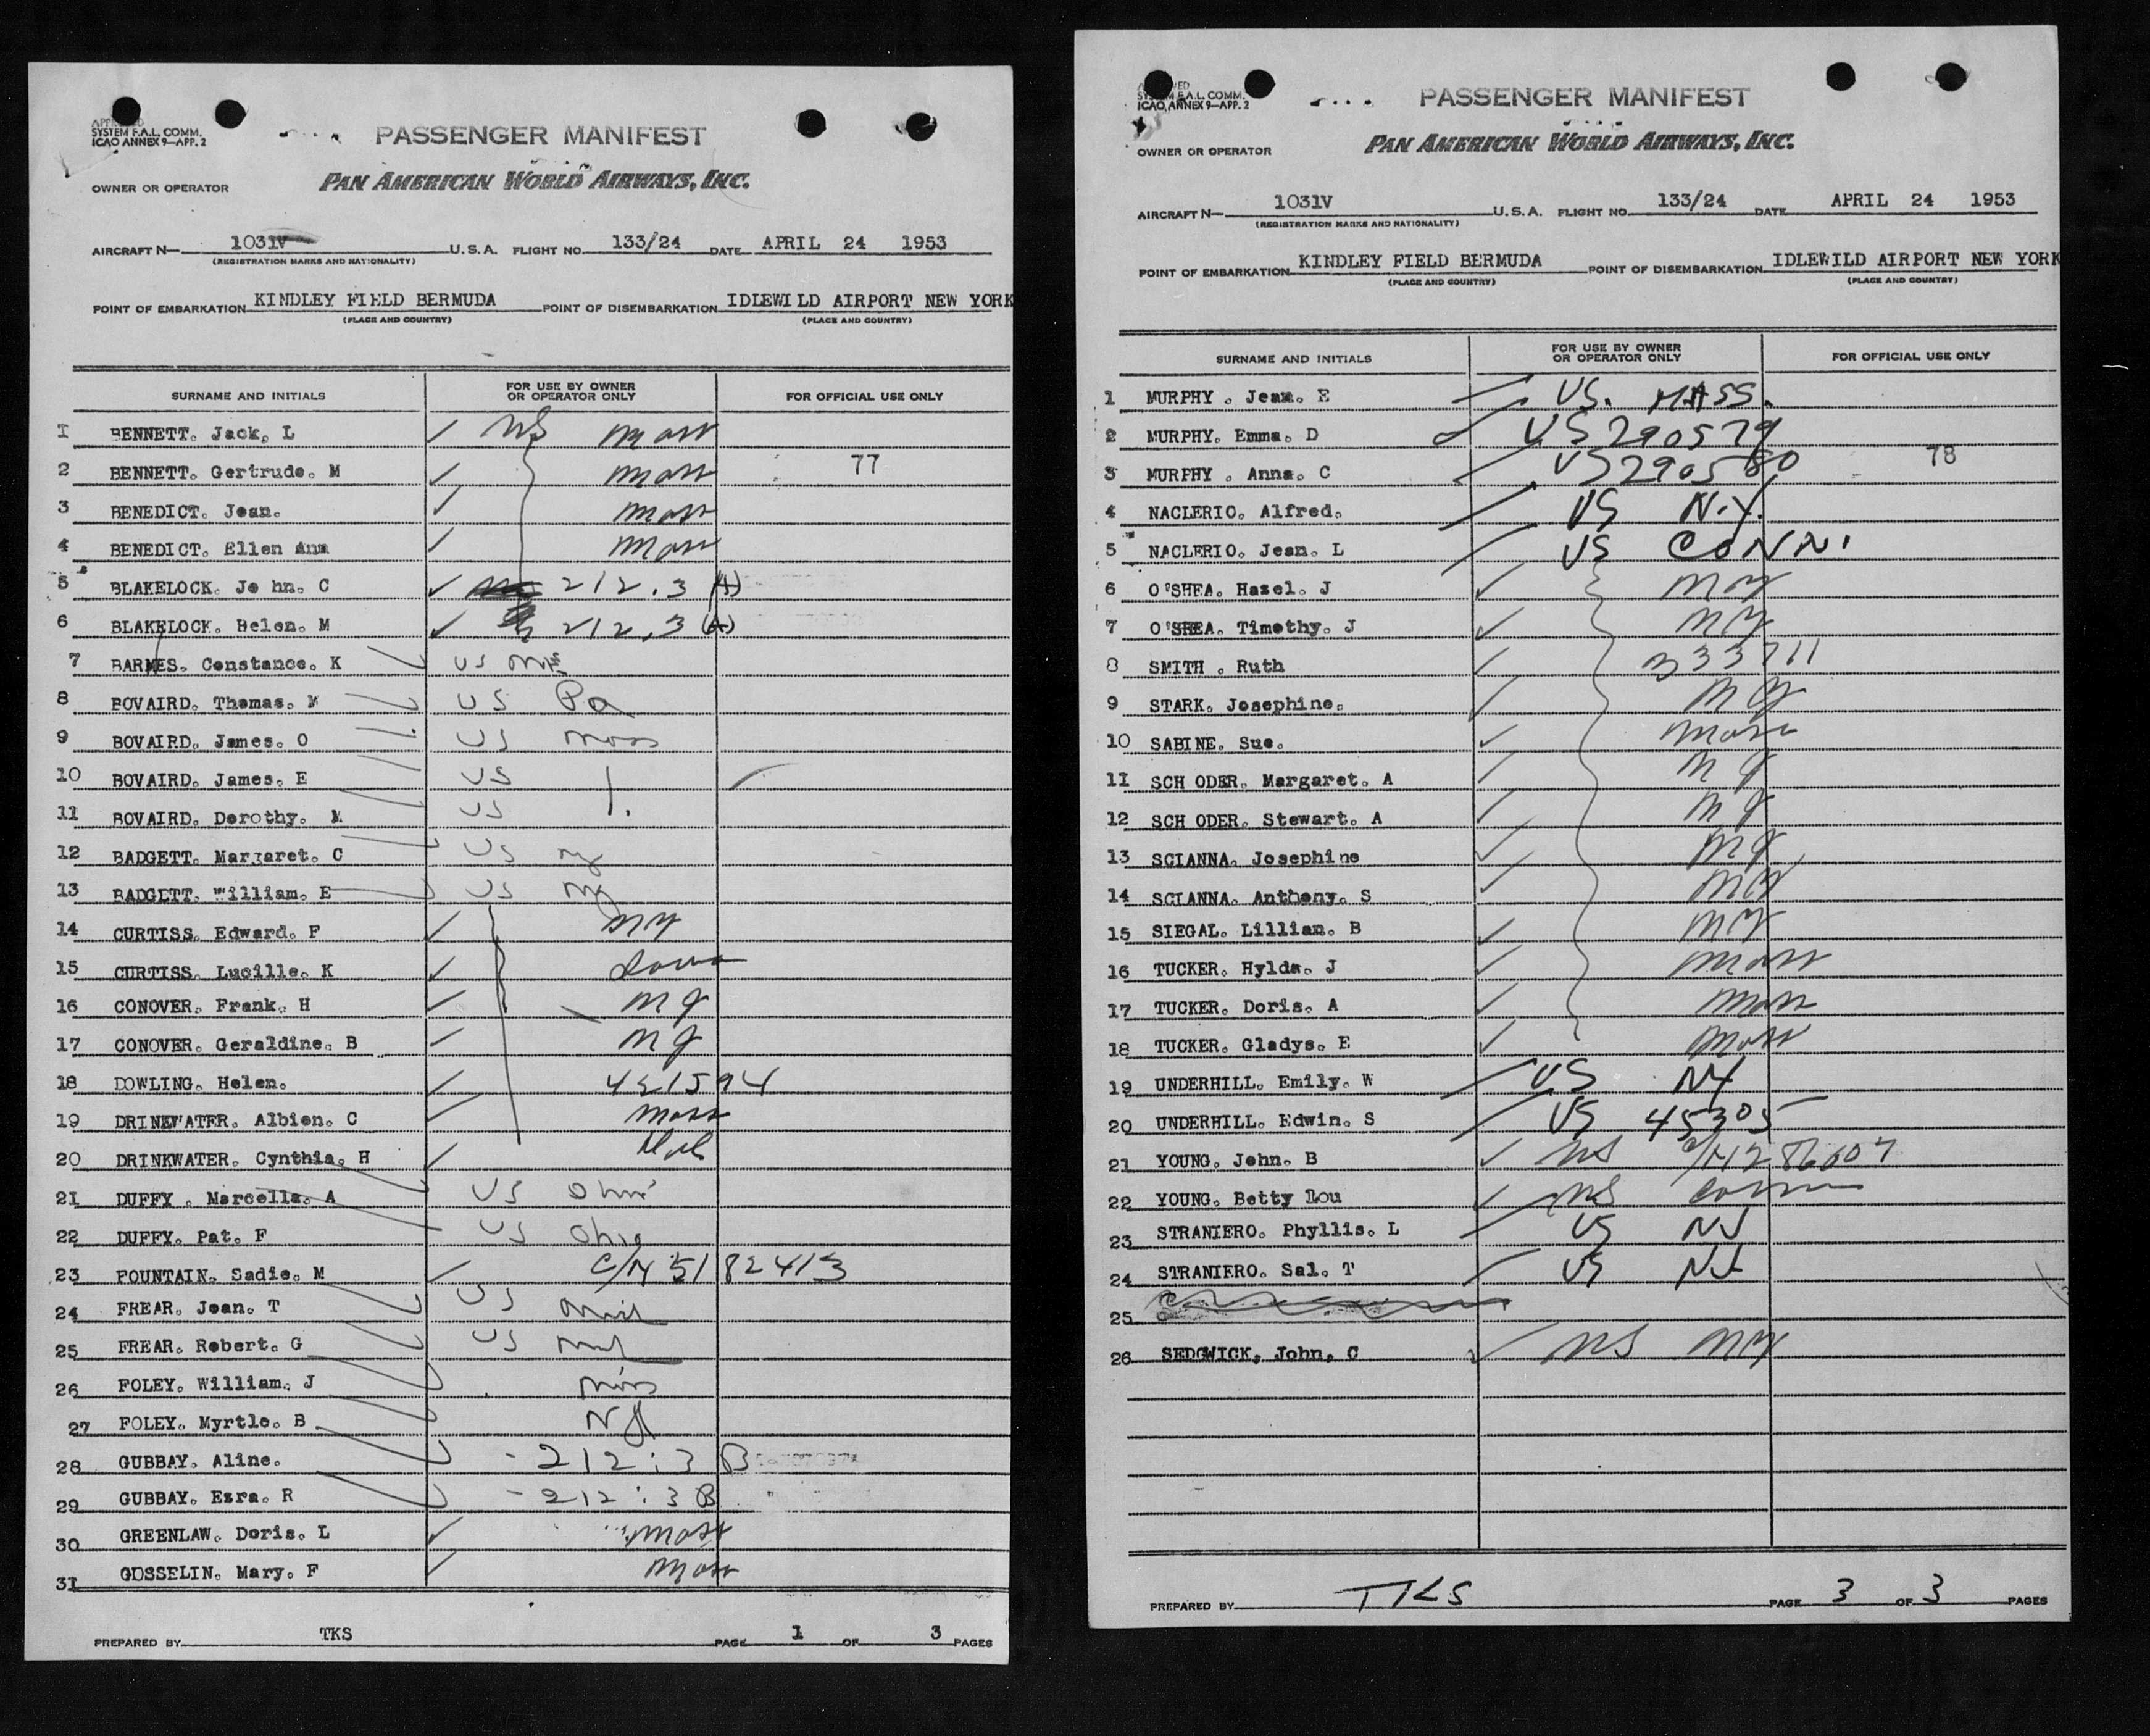 SYSTEM F.A.L. COMM.
ICAO ANNEX 9—APP. 2
PASSENGER MANIFEST
PAN AMERICAN WORLD AIRWAYS, INC.
OWNER OR OPERATOR
AIRCRAFT N— 1031V U.S.A. FLIGHT NO. 133/24 DATE APRIL 24 1953
(REGISTRATION MARKS AND NATIONALITY)
POINT OF EMBARKATION KINDLEY FIELD BERMUDA POINT OF DISEMBARKATION IDLEWILD AIRPORT NEW YORK
(PLACE AND COUNTRY) (PLACE AND COUNTRY)
SURNAME AND INITIALS FOR USE BY OWNER OR OPERATOR ONLY FOR OFFICIAL USE ONLY
1 BENNETT. Jack. L US Mass
2 BENNETT. Gertrude. M Mass 77
3 BENEDICT. Jean. Mass
4 BENEDICT. Ellen Ann Mass
5 BLAKELOCK. Jo hn. C 212.3 (A)
6 BLAKELOCK. Helen. M 212.3 (A)
7 BARNES. Constance. K US
8 BOVAIRD. Thomas. M US Pa
9 BOVAIRD. James. O US Mass
10 BOVAIRD. James. E US
11 BOVAIRD. Dorothy. M US
12 BADGETT. Margaret. C US NY
13 BADGETT. William. E US NY
14 CURTISS. Edward. F NY
15 CURTISS. Lucille. K Iowa
16 CONOVER. Frank. H NJ
17 CONOVER. Geraldine. B NJ
18 DOWLING. Helen. 421594
19 DRINKWATER. Albion. C Mass
20 DRINKWATER. Cynthia. H
21 DUFFY . Marcella. A US Ohio
22 DUFFY. Pat. F US Ohio
23 FOUNTAIN. Sadie. M C/N 5182413
24 FREAR. Jean. T US
25 FREAR. Robert. G US
26 FOLEY. William. J
27 FOLEY. Myrtle. B
28 GUBBAY. Aline. - 212:3 B
29 GUBBAY. Ezra. R - 212:3 B
30 GREENLAW. Doris. L Mass
31 GOSSELIN. Mary. F Mass
PREPARED BY TKS PAGE 1 OF 3 PAGES
SYSTEM F.A.L. COMM.
ICAO ANNEX 9—APP. 2
PASSENGER MANIFEST
PAN AMERICAN WORLD AIRWAYS, INC.
OWNER OR OPERATOR
AIRCRAFT N— 1031V U.S.A. FLIGHT NO. 133/24 DATE APRIL 24 1953
(REGISTRATION MARKS AND NATIONALITY)
POINT OF EMBARKATION KINDLEY FIELD BERMUDA POINT OF DISEMBARKATION IDLEWILD AIRPORT NEW YORK
(PLACE AND COUNTRY) (PLACE AND COUNTRY)
SURNAME AND INITIALS FOR USE BY OWNER OR OPERATOR ONLY FOR OFFICIAL USE ONLY
1 MURPHY . Jean. E US. MASS.
2 MURPHY. Emma. D US 290579
3 MURPHY . Anna. C US 290580 78
4 NACLERIO. Alfred. US N.Y.
5 NACLERIO. Jean. L US CONN.
6 O'SHEA. Hazel. J NY
7 O'SHEA. Timothy. J NY
8 SMITH . Ruth 333711
9 STARK. Josephine. NY
10 SABINE. Sue. Mass
11 SCH ODER. Margaret. A NJ
12 SCH ODER. Stewart. A NJ
13 SCIANNA. Josephine NY
14 SCIANNA. Anthony. S NY
15 SIEGAL. Lillian. B NY
16 TUCKER. Hylda. J Mass
17 TUCKER. Doris. A Mass
18 TUCKER. Gladys. E Mass
19 UNDERHILL. Emily. W US NY
20 UNDERHILL. Edwin. S US 45305
21 YOUNG. John. B US
22 YOUNG. Betty Lou US Conn
23 STRANIERO. Phyllis. L US NJ
24 STRANIERO. Sal. T US NJ
25
26 SEDGWICK, John, C US NY
PREPARED BY TKS PAGE 3 OF 3 PAGES